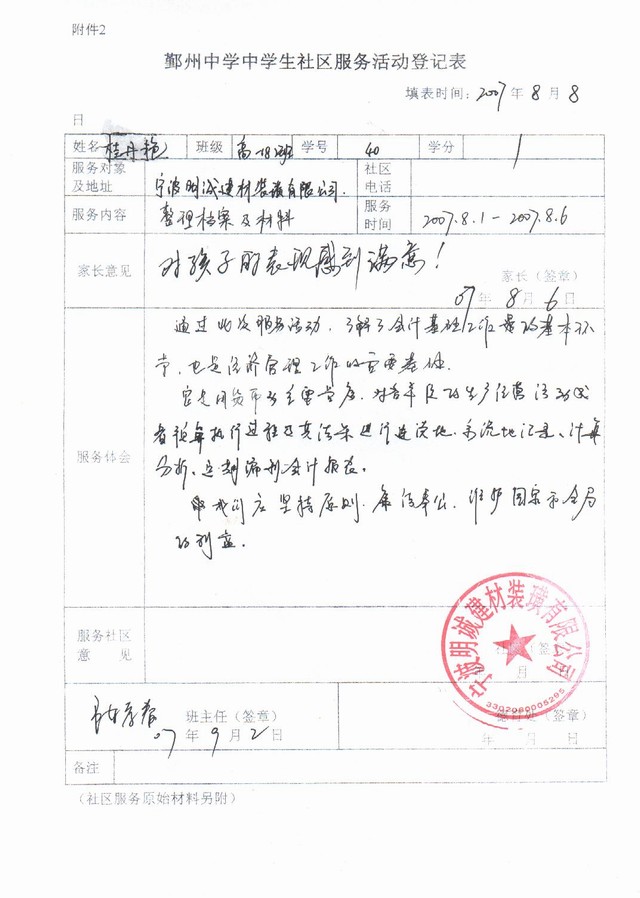 附件2
鄞州中学中学生社区服务活动登记表
填表时间：2007年8月8
日
姓名 桂丹艳 班级 高一18班 学号 40 学分 1
服务对象及地址 宁波明诚建材装璜有限公司 社区电话
服务内容 整理档案及材料 服务时间 2007.8.1—2007.8.6
家长意见 对孩子的表现感到满意！
家长（签章）
07年8月6日
服务体会
通过此次服务活动，了解了会计基础工作是的基本环
节，也是经济管理工作的重要基础。
它是用货币为主要尺度，对
进行连续地、系统地记录、计算
分析、定期编制会计报表。
我们应坚持原则，廉洁奉公，维护国家和全局
的利益。
服务社区意见
宁波明诚建材装璜有限公司
月 日
班主任（签章）
07年9月2日
（签章）
年 月 日
备注
（社区服务原始材料另附）